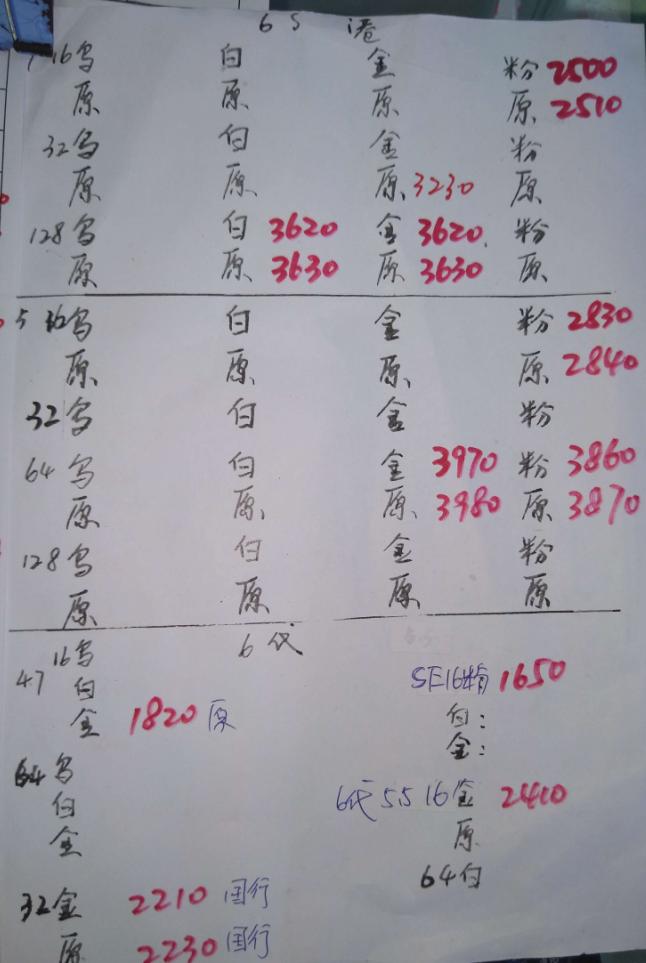 6S 港
16乌 白 金 粉 2500
原 原 原 原 2510
32乌 白 金 粉
原 原 原 3230 原
128乌 白 3620 金 3620 粉
原 原 3630 原 3630 原
5 16乌 白 金 粉 2830
原 原 原 原 2840
32乌 白 金 粉
64乌 白 金 3970 粉 3860
原 原 原 3980 原 3870
128乌 白 金 粉
原 原 原 原
6代
47 16乌
白
金 1820 原
64乌
白
金
32金 2210 国行
原 2230 国行
SE16粉 1650
白:
金:
6代 55 16金 2410
原
64白